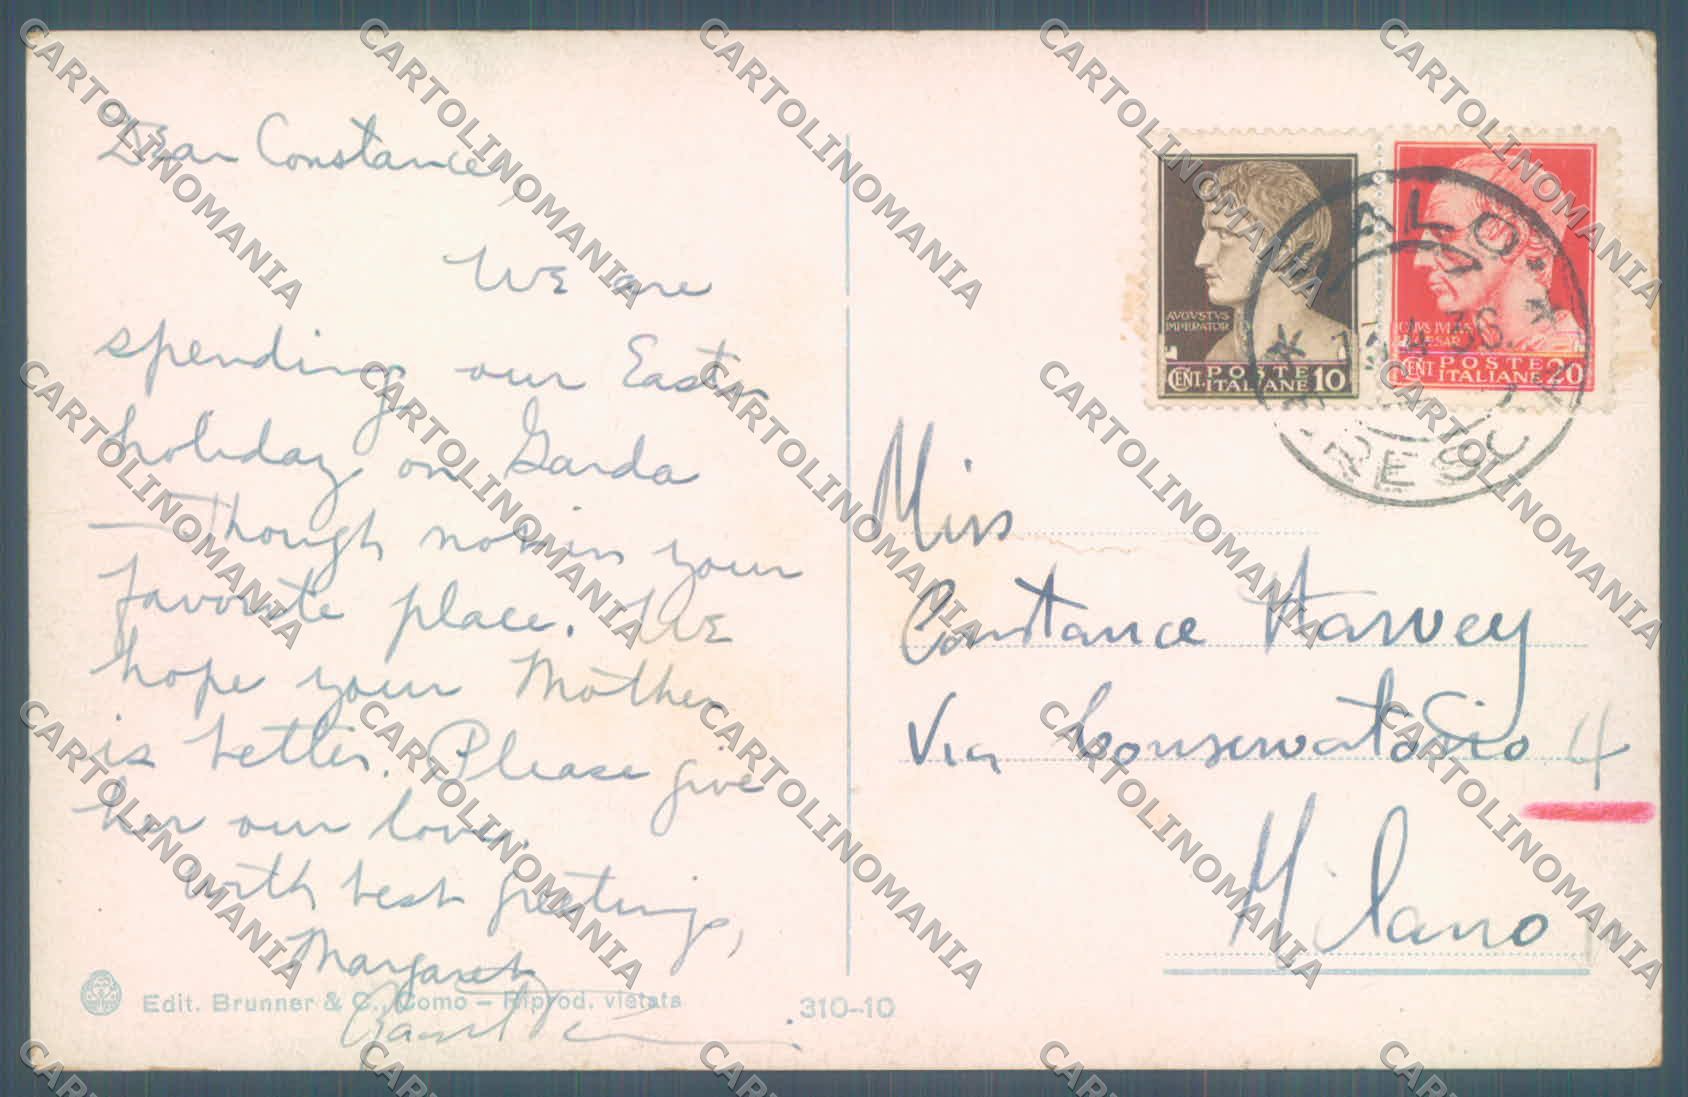 Dear Constance,
We are
spending our Easter
holiday on Garda
— though not in your
favorite place. We
hope your Mother
is better. Please give
her our love.
With best greetings,
Margaret
Edit. Brunner & C., Como – Riprod. vietata
310-10
AVGVSTVS
IMPERATOR
CENT. POSTE ITALIANE 10
CENT. POSTE ITALIANE 20
SALO'
4.36
BRESCIA
Miss
Constance Harvey
Via Conservatorio 4
Milano
CARTOLINOMANIA